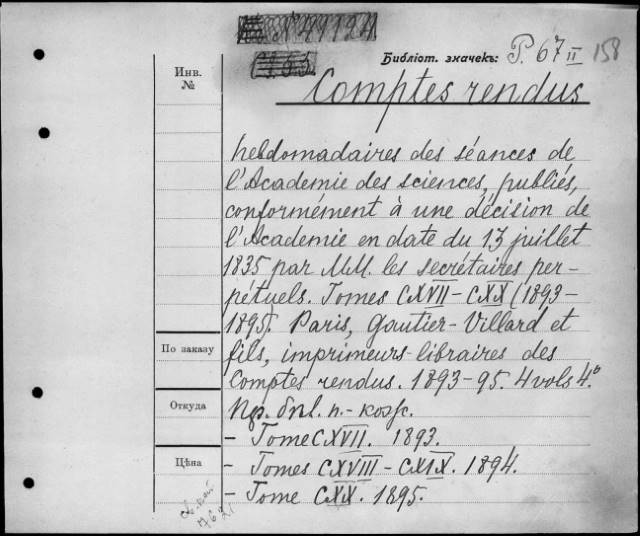 № 49124
Библіот. значекъ: P. 67 II 158
Инв.
№
Comptes rendus
hebdomadaires des séances de
l'Academie des sciences, publiés,
conformément à une décision de
l'Academie en date du 13 juillet
1835 par M.M. les secrétaires per-
pétuels. Tomes CXVII – CXX (1893–
1895). Paris, Gautier-Villard et
По заказу
fils, imprimeurs-libraires des
Comptes rendus. 1893-95. 4 vols 4°.
Откуда
– Tome CXVII. 1893.
Цѣна
– Tomes CXVIII – CXIX. 1894.
– Tome CXX. 1895.